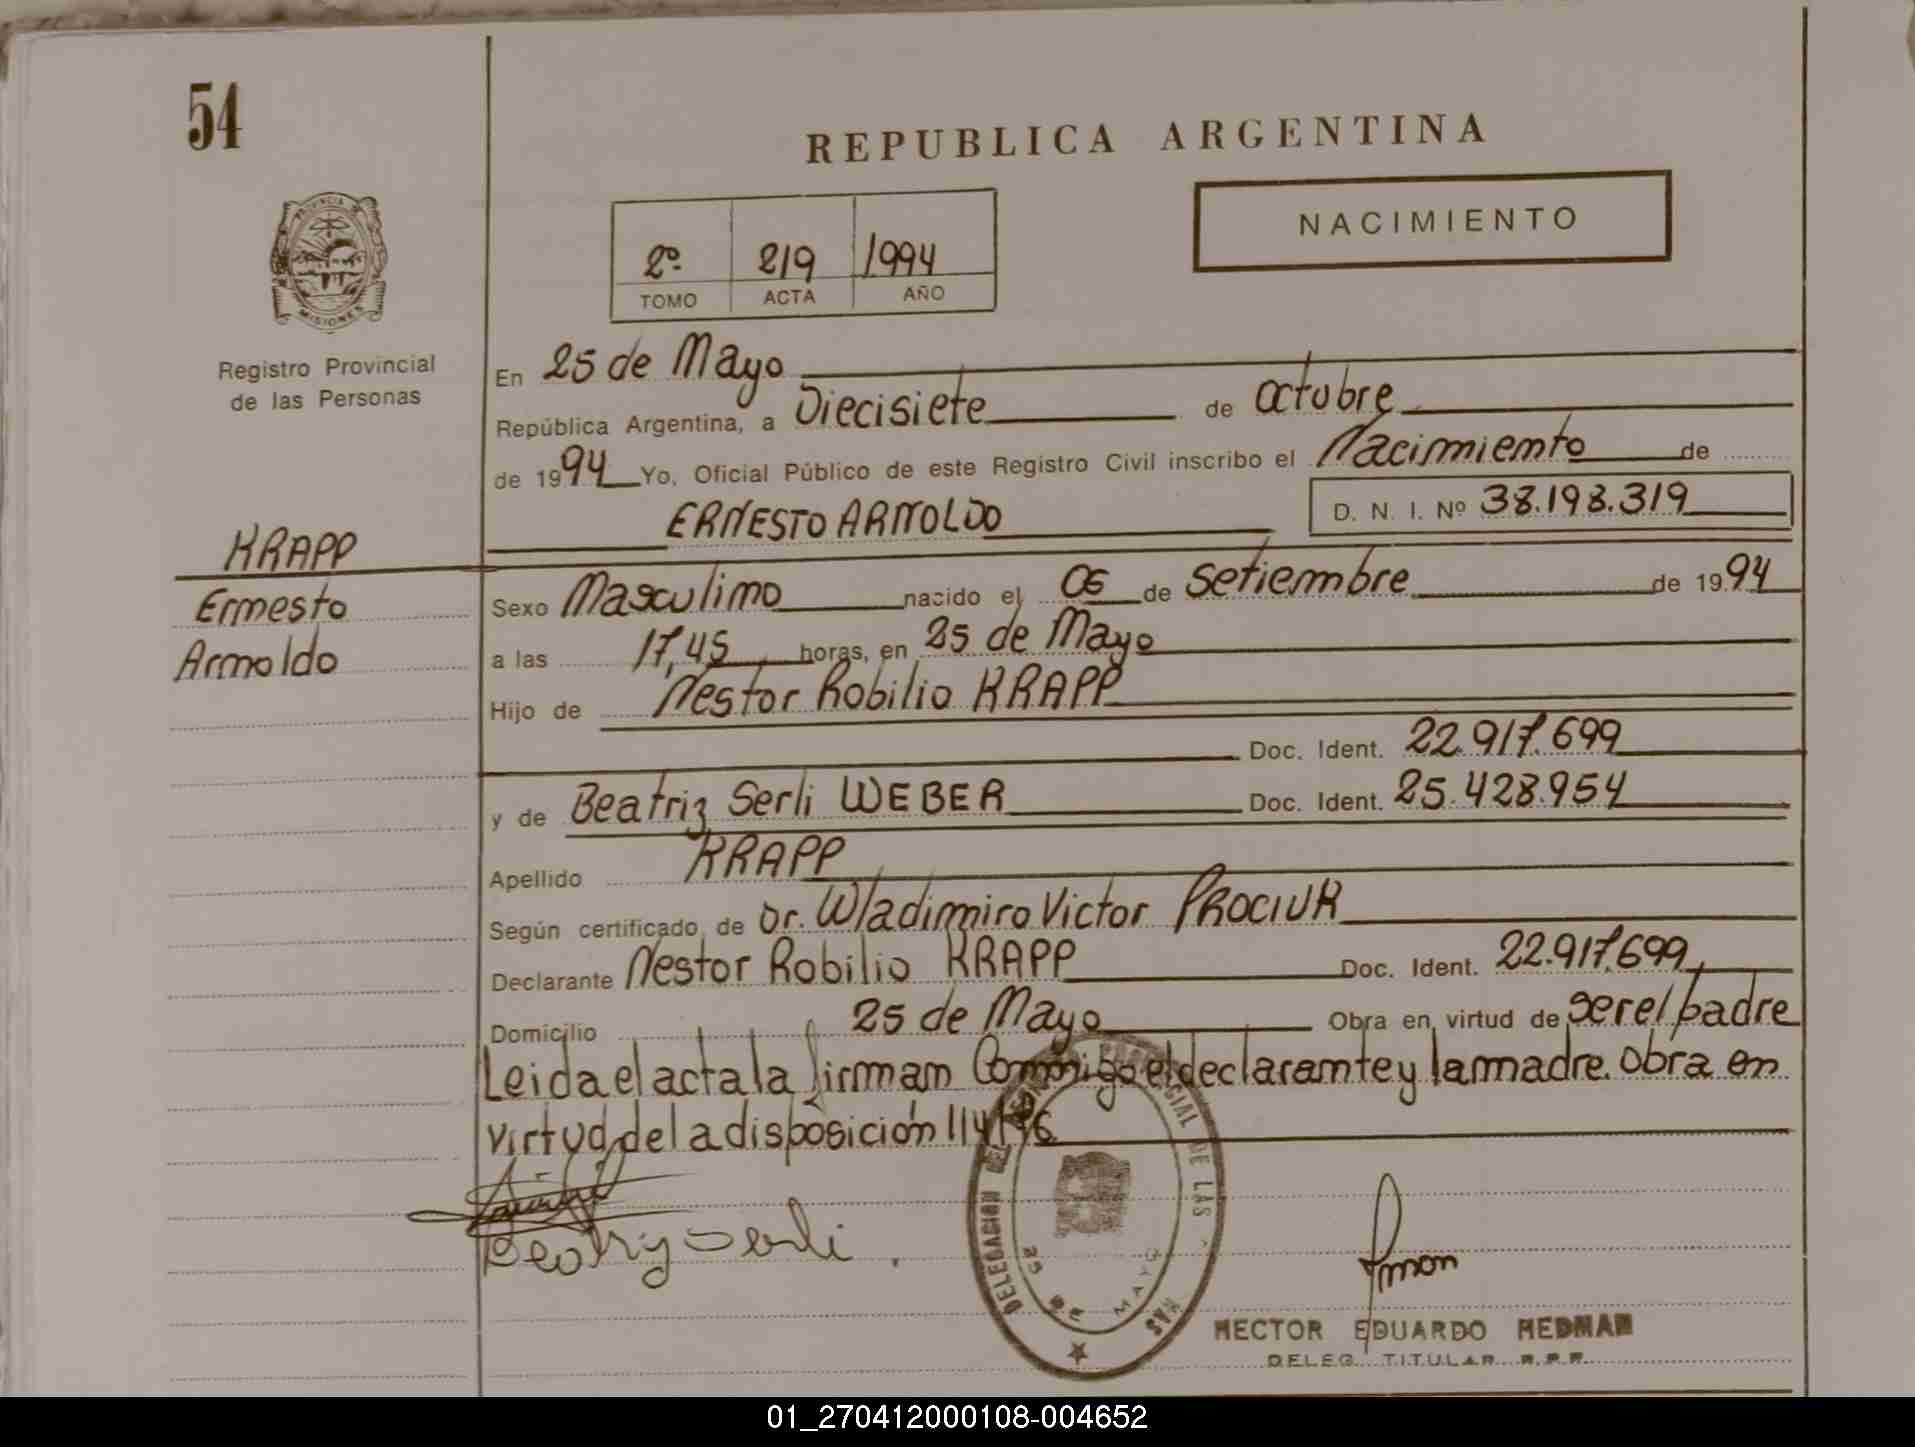 54
REPUBLICA ARGENTINA
NACIMIENTO
2º 219 1994
TOMO ACTA AÑO
PROVINCIA DE
MISIONES
Registro Provincial
de las Personas
En 25 de Mayo
República Argentina, a Diecisiete de octubre
de 1994 Yo, Oficial Público de este Registro Civil inscribo el Nacimiento de
ERNESTO ARNOLDO D. N. I. Nº 38.198.319
KRAPP
Ernesto
Arnoldo
Sexo Masculino nacido el 06 de Setiembre de 1994
a las 17,45 horas, en 25 de Mayo
Hijo de Nestor Robilio KRAPP
Doc. Ident. 22.917.699
y de Beatriz Serli WEBER Doc. Ident. 25.428.954
Apellido KRAPP
Según certificado de Dr. Wladimiro Victor PROCIUK
Declarante Nestor Robilio KRAPP Doc. Ident. 22.917.699
Domicilio 25 de Mayo Obra en virtud de ser el padre
Leida el acta la firman Conmigo el declarante y la madre. Obra en
virtud de la disposición 114/
Beatriz Serli
DELEGACION DEL PROVINCIAL DE LAS
25 DE MAYO
HECTOR EDUARDO HEDMAN
DELEG. TITULAR R.P.P.
01_270412000108-004652